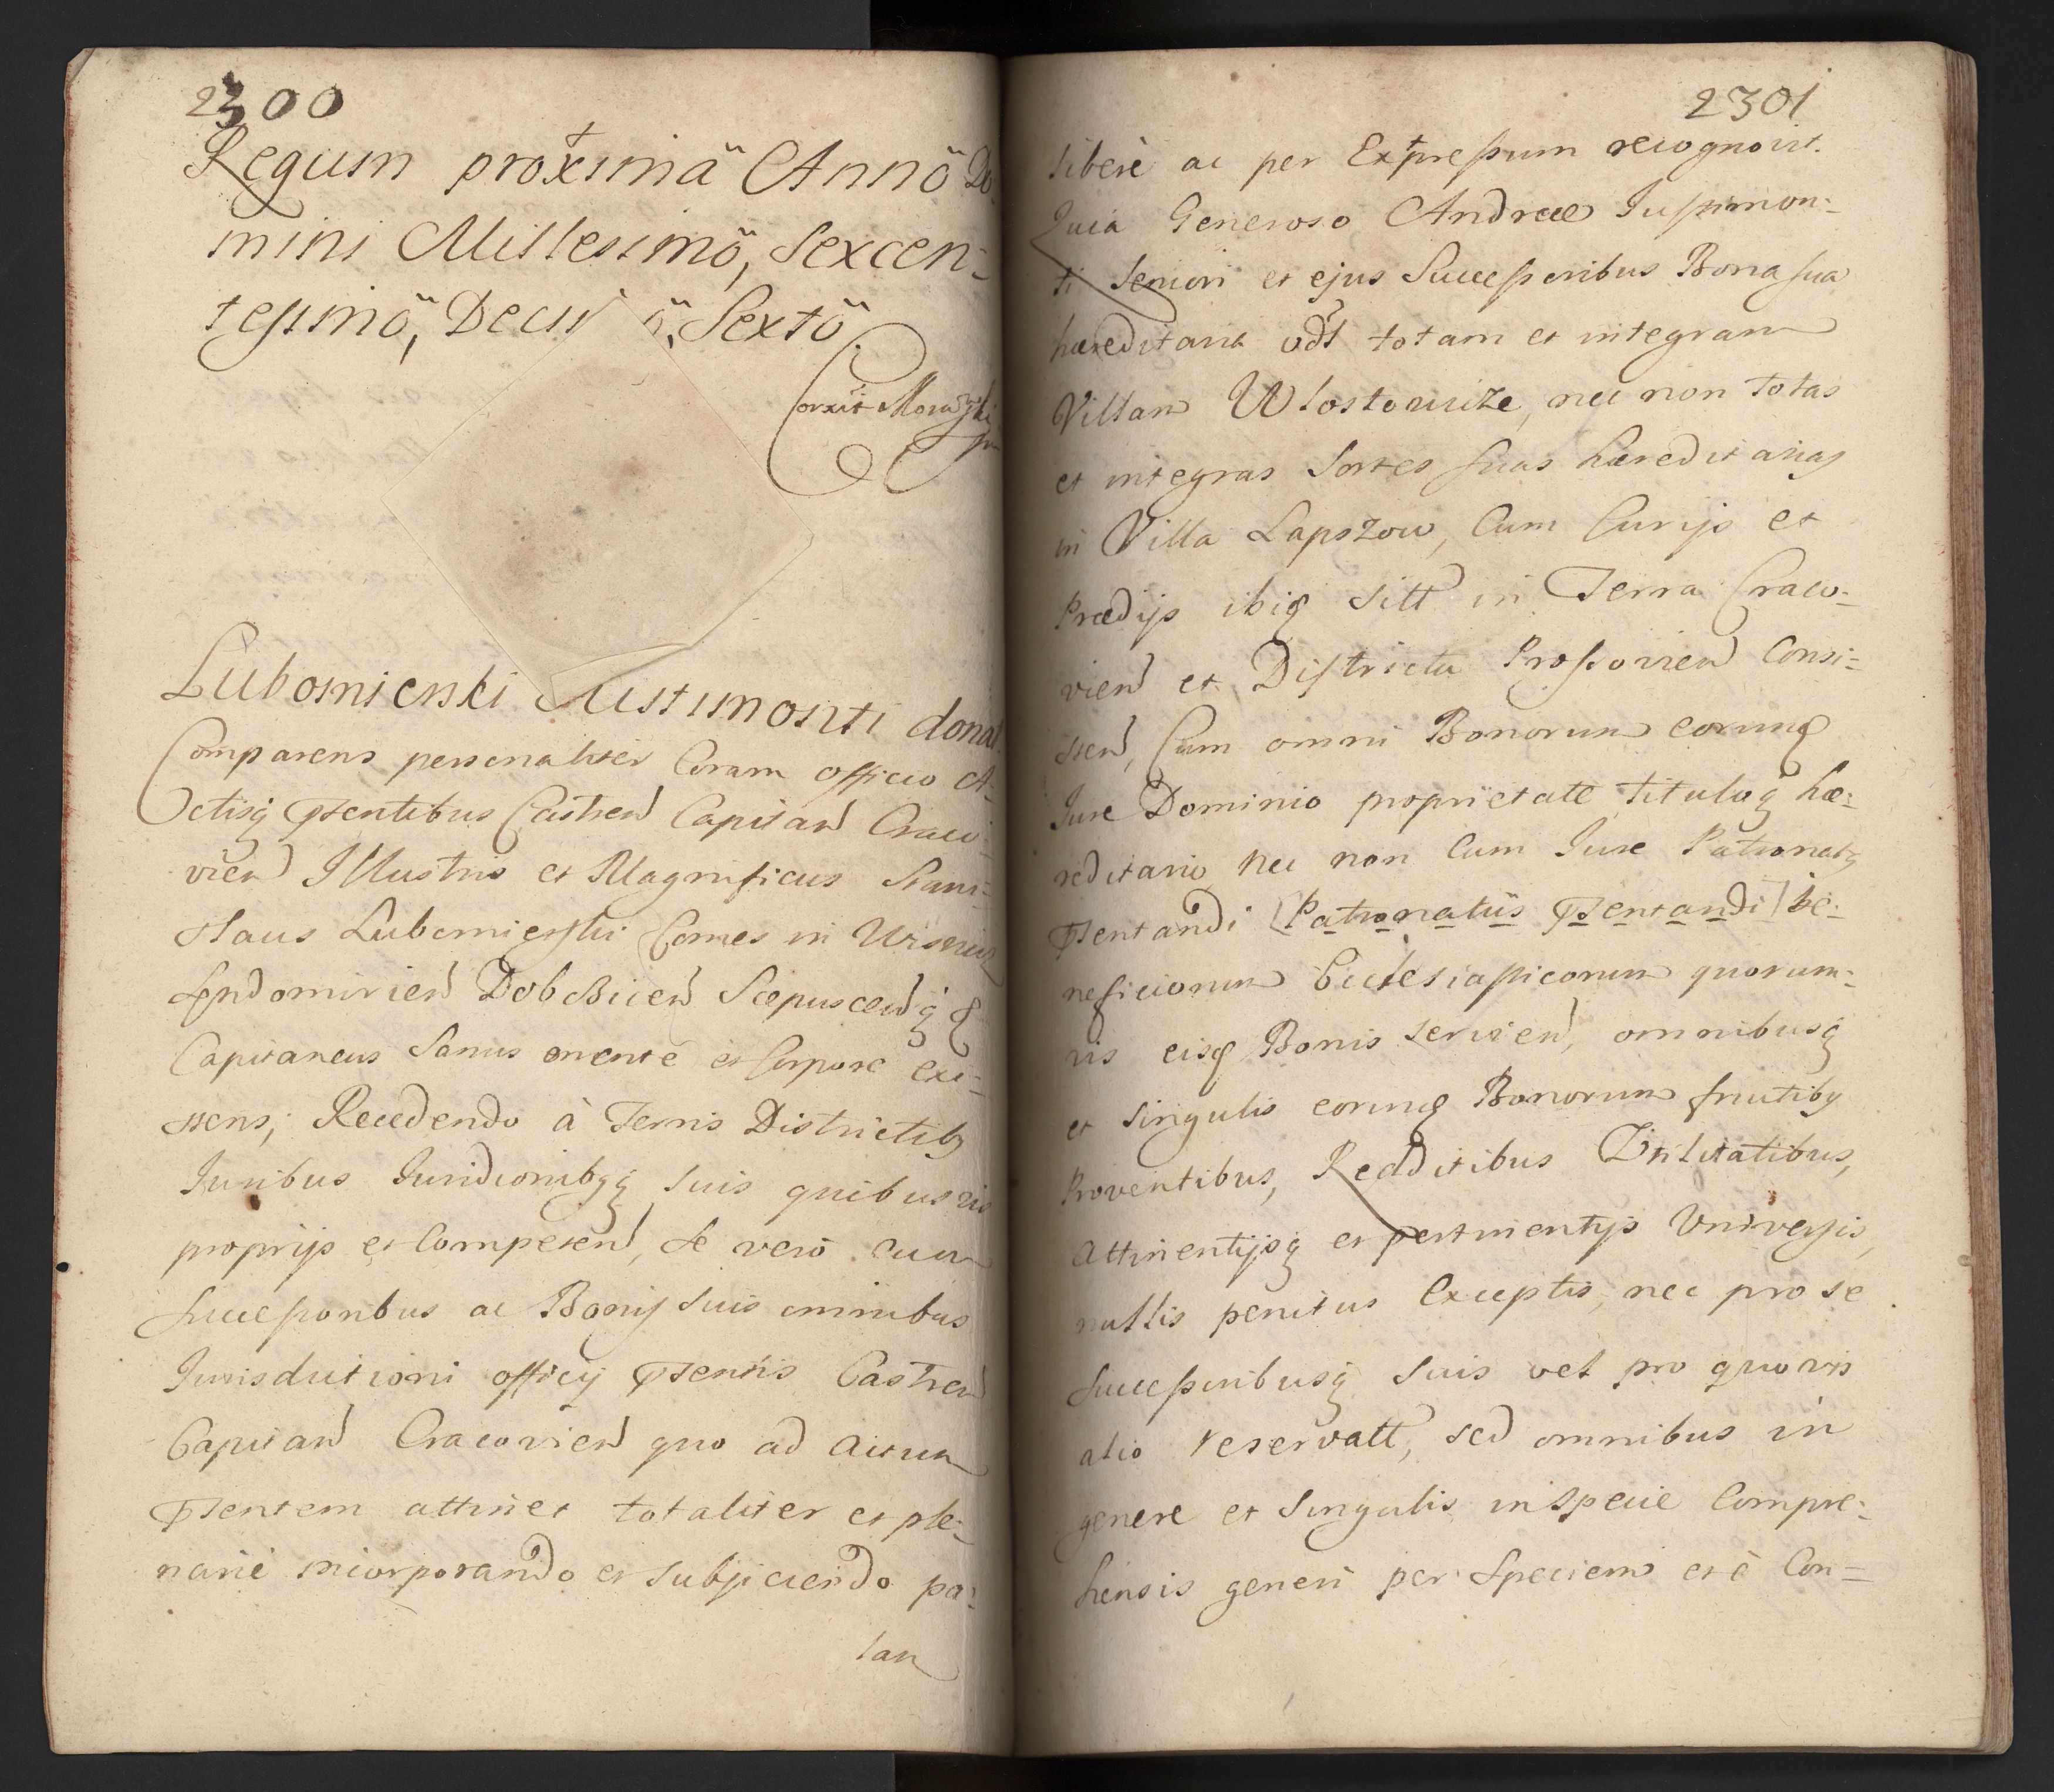 2300
Regum proximâ Annô Do-
mini Millesimô, Sexcen-
tesimô, Deci ô, Sextô
Corxit
Lubomierski Justimonti donat
Comparens personaliter Coram officio A-
Ctisq pñtentibus Castren Capitan Craco-
vien Illustris et Magnificus Stani-
slaus Lubomierski Comes in Wisnicz
Sendomirien Dobczicen Scepuscenq &
Capitaneus Sanus mente et Corpore exi-
stens, Recedendo à Terris Districtibq
Juribus Juridionibqq suis quibusvis
proprijs et Competen, se verò cum
Successoribus ac Bonis suis omnibus
Jurisdictioni officij pñtentis Castren
Capitan Cracovien quo ad actum
pñtentem attinet totaliter et ple-
nariè incorporando et subjiciendo pa-
lam
2301
liberè ac per Expressum recognovit.
Quia Generoso Andreæ Justimon-
ti Seniori et ejus Successoribus Bona sua
hæreditaria vdt totam et integram
Villam Wlostowize, nec non totas
et integras Sortes suas hæreditarias
in Villa Lapszow, Cum Curijs et
Prædijs ibiq sitt in Terra Craco-
vien et Districtu Prossovien Consi-
sten, Cum omni Bonorum eorunq
Jure Dominio proprietate Tituloq hæ-
reditario, nec non Cum Jure Patronatq
pñtentandi [Patronatûs pñtentandi] be-
neficiorum Ecclesiasticorum quorum-
vis eisq Bonis servien, omnibusq
et Singulis eorunq Bonorum fructibq
Proventibus, Redditibus Utilitatibus,
Attinentijsq et pertinentijs Universis,
nullis penitus Exceptis, nec pro se
Successoribusq suis vel pro quovis
alio reservatt, sed omnibus in
genere et Singulis in Specie Compre-
hensis generi per Speciem et è Con-